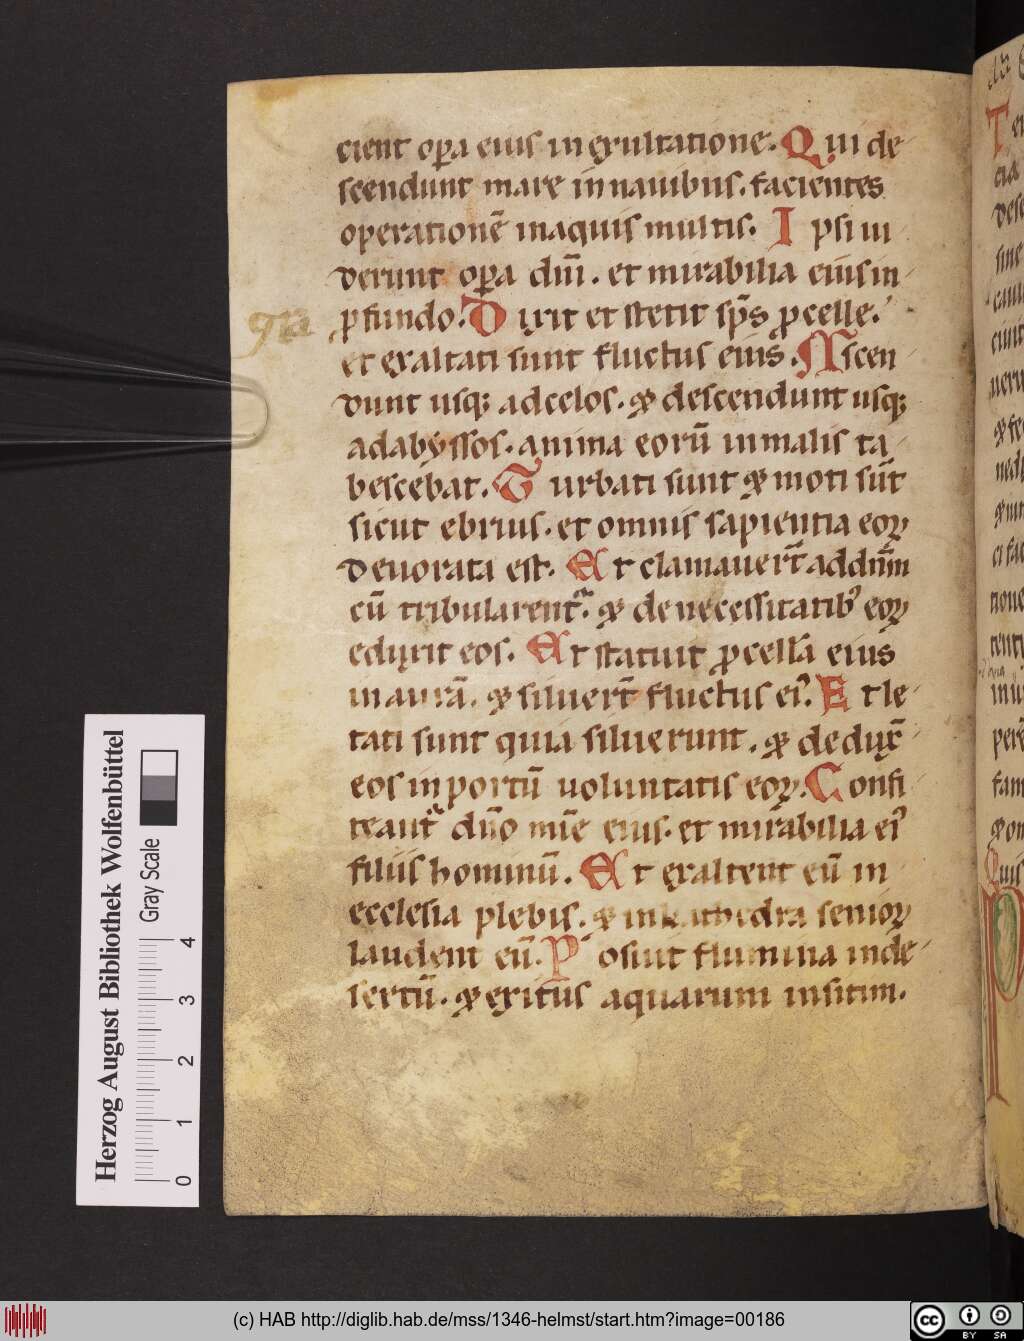 cient opa eius in exultatione. Qui de
scendunt mare in nauibus. facientes
operationē inaquis multis. Ipsi ui
derunt opa dn̄i. et mirabilia eius in
pfundo. Dixit et stetit sps̄ pcelle.
et exaltati sunt fluctus eius. Ascen
dunt usq; adcelos. & descendunt usq;
adabyssos. anima eorū inmalis ta
bescebat. Turbati sunt & moti sūt
sicut ebrius. et omnis sapientia eoꝝ
deuorata est. Et clamauert̄ addn̄m
cū tribularent᷑. & denecessitatib; eoꝝ
eduxit eos. Et statuit pcellā eius
in aurā. & siluert̄ fluctus ei᷒. Et le
tati sunt quia siluerunt. & dedux̄
eos in portū uoluntatis eoꝝ. Confi
teant᷑ dn̄o mīe eius. et mirabilia ei᷒
filiis hominū. Et exaltent eū in
ecclesia plebis. & in kathedra senioꝝ
laudent eū. Posuit flumina inde
sertū. & exitus aquarum insitim.
Herzog August Bibliothek Wolfenbüttel
Gray Scale
0 1 2 3 4
(c) HAB http://diglib.hab.de/mss/1346-helmst/start.htm?image=00186
cc BY SA